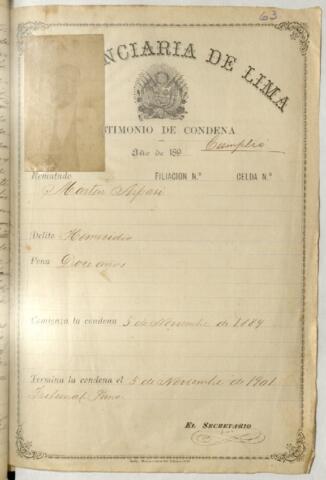 63
NCIARIA DE LIMA
TIMONIO DE CONDENA
Año de 189 Cumplió
Rematado FILIACION N.º CELDA N.º
Martin
Delito Homicidio
Pena Doce años
Comienza la condena 5 de Noviembre de 1889
Termina la condena el 5 de Noviembre de 1901
Tribunal Puno
EL SECRETARIO